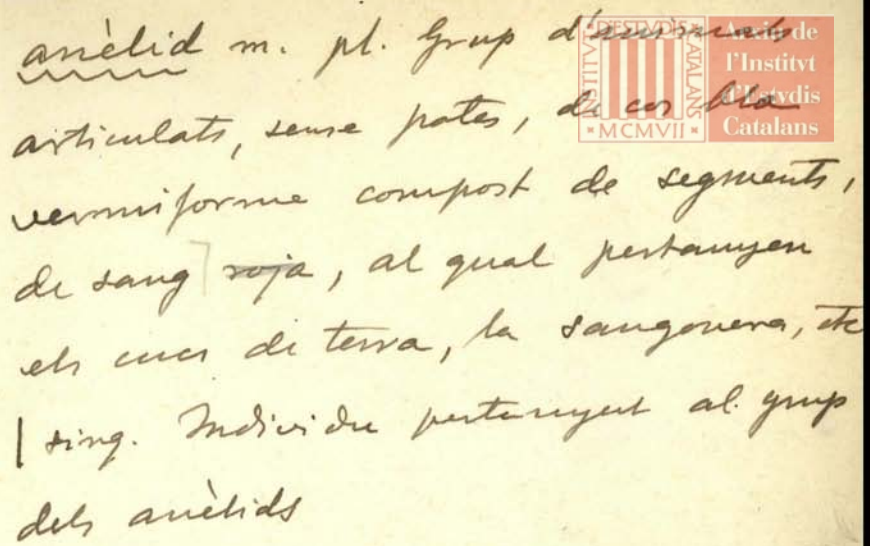 anèlid m. pl. Grup d'animals
articulats, sense potes, de cos bla
vermiforme compost de segments,
de sang roja, al qual pertanyen
els cucs de terra, la sangonera, etc
| sing. Individu pertanyent al grup
dels anèlids
INSTITVT D'ESTVDIS CATALANS
MCMVII
Arxiu de
l'Institvt
d'Estvdis
Catalans